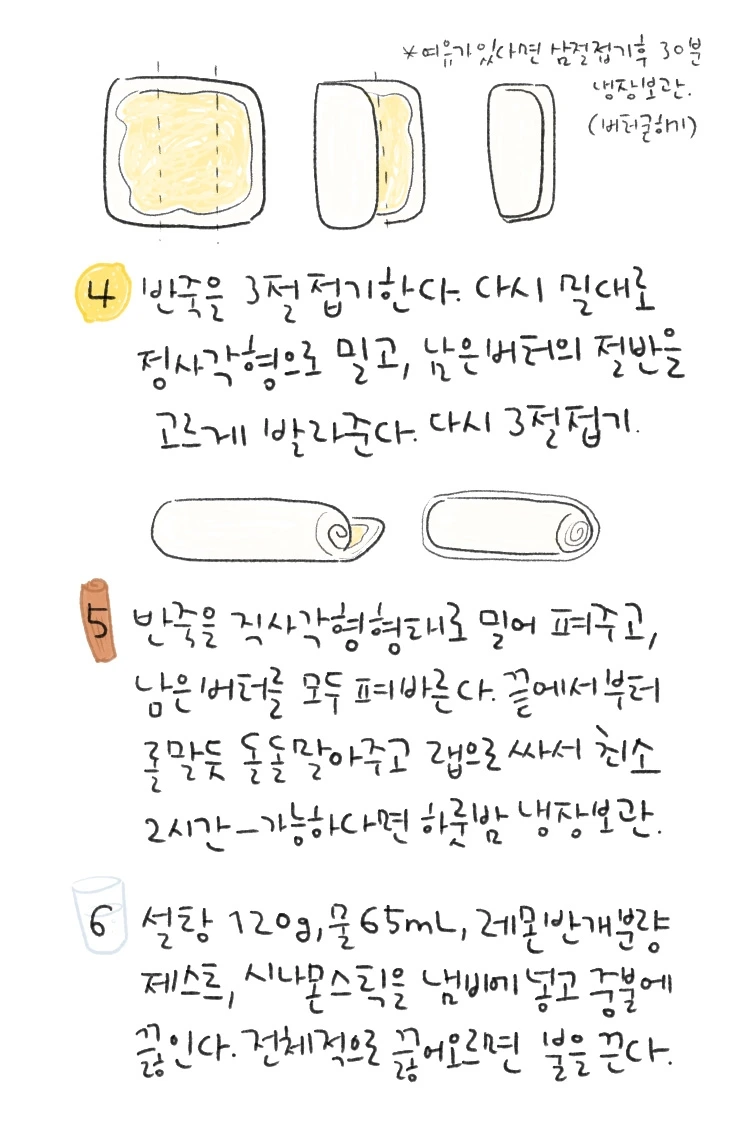 *여유가있다면 삼절접기후 30분
냉장보관.
(버터굳히기)
4 반죽을 3절접기한다. 다시 밀대로
정사각형으로 밀고, 남은버터의 절반을
고르게 발라준다. 다시 3절접기.
5 반죽을 직사각형형태로 밀어 펴주고,
남은버터를 모두 펴바른다. 끝에서부터
롤말듯 돌돌말아주고 랩으로 싸서 최소
2시간-가능하다면 하룻밤 냉장보관.
6 설탕 120g, 물 65mL, 레몬반개분량
제스트, 시나몬스틱을 냄비에 넣고 중불에
끓인다. 전체적으로 끓어오르면 불을 끈다.